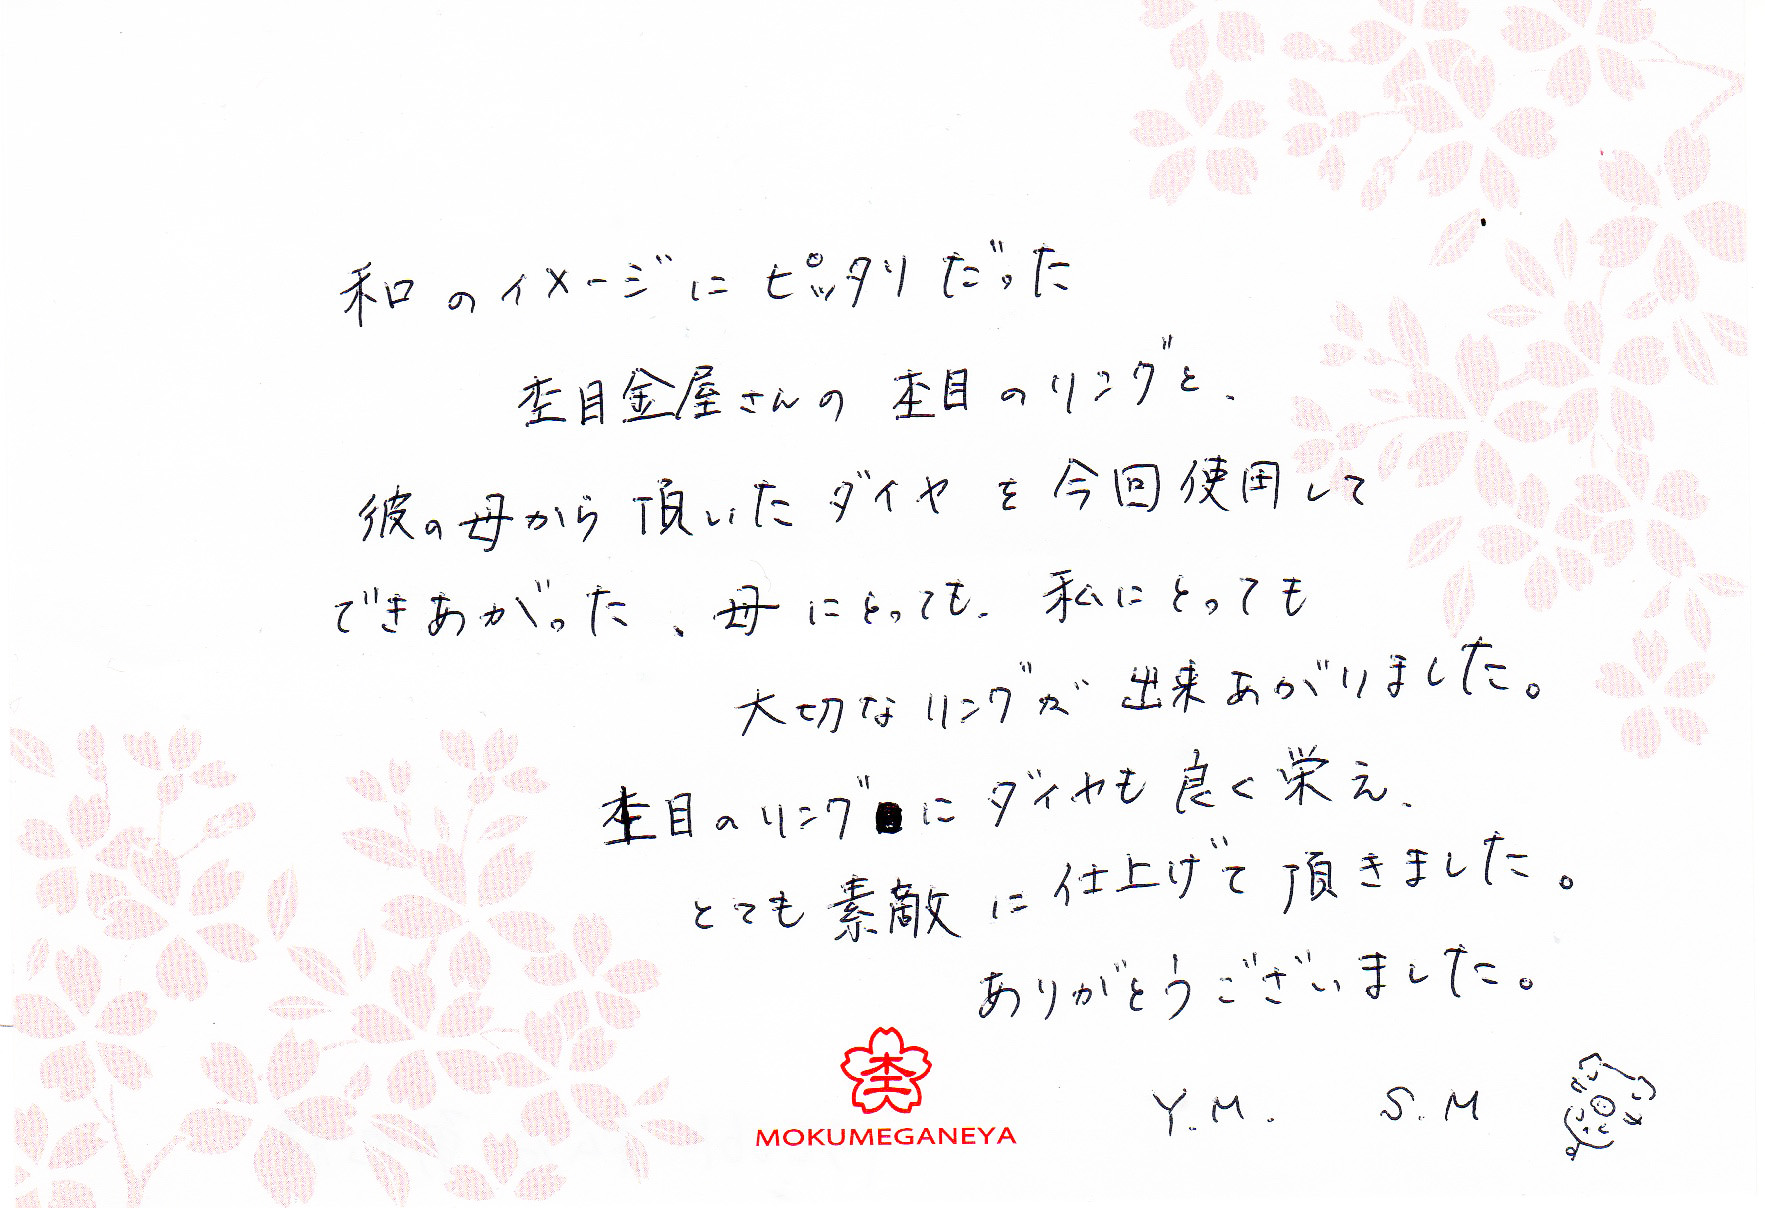 和のイメージにピッタリだった
杢目金屋さんの 杢目のリングと、
彼の母から頂いたダイヤを今回使用して
できあがった、母にとっても、私にとっても
大切なリングが出来あがりました。
杢目のリングにダイヤも良く栄え、
とても素敵に仕上げて頂きました。
ありがとうございました。
杢
MOKUMEGANEYA
Y.M. S.M